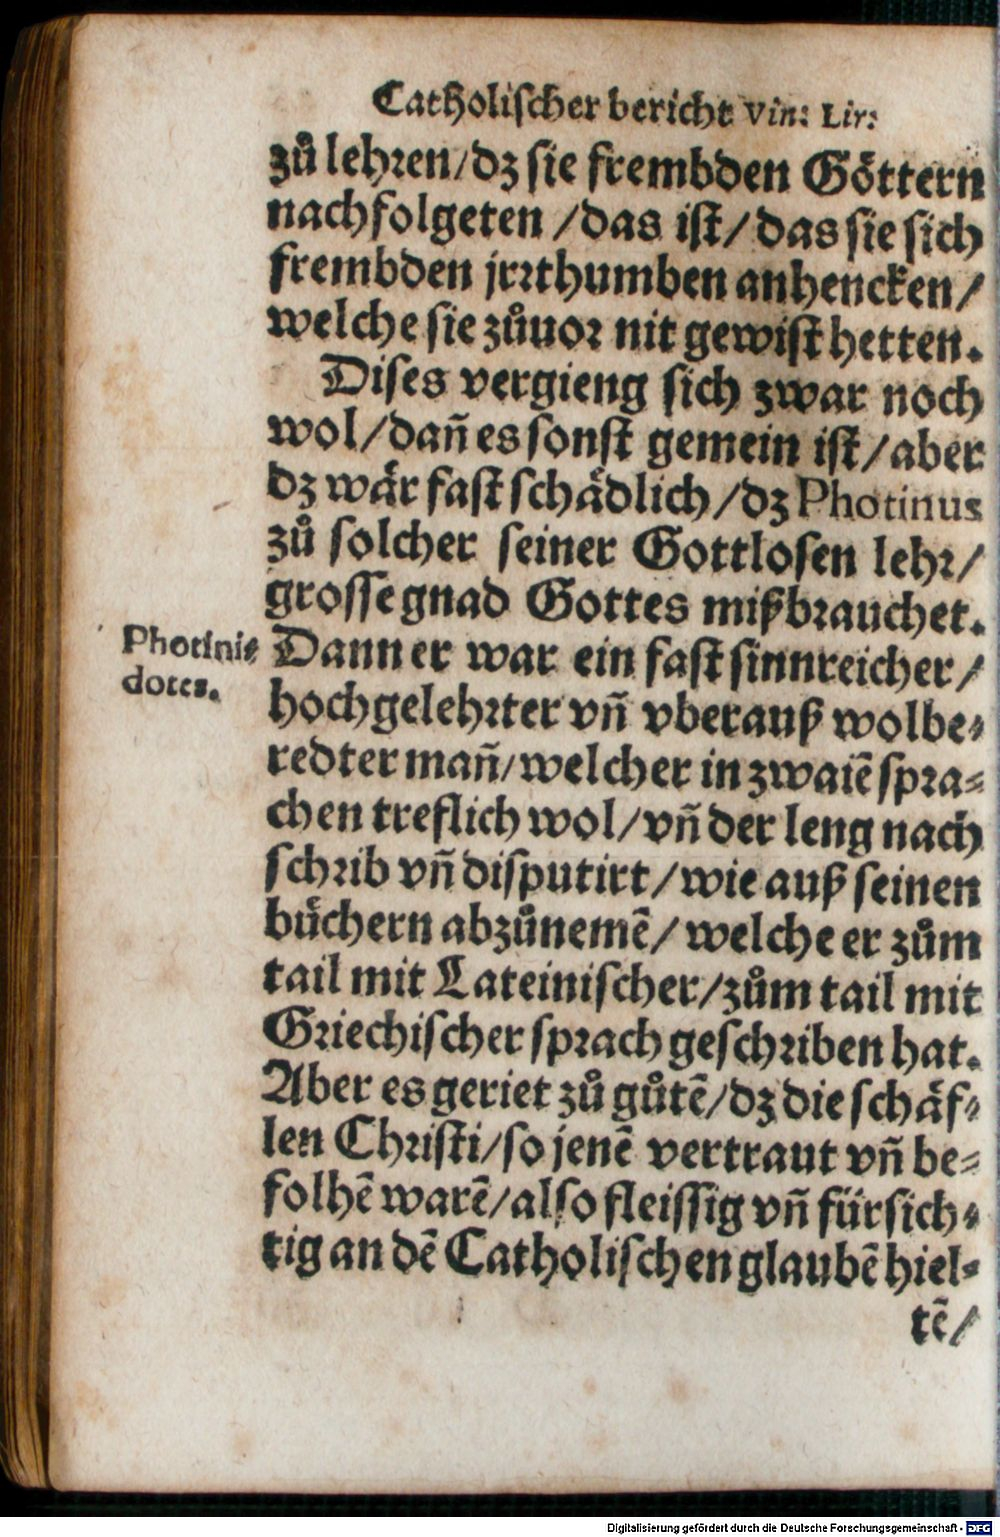 Catholischer bericht Vin: Lir:
zů lehren/dz sie frembden Göttern
nachfolgeten /das ist/das sie sich
frembden jrrthumben anhencken/
welche sie zůuor nit gewist hetten.
Dises vergieng sich zwar noch
wol/dañ es sonst gemein ist/aber
dz wår fast schådlich/dz Photinus
zů solcher seiner Gottlosen lehr/
grosse gnad Gottes mißbrauchet.
Photini
dotes.
Dann er war ein fast sinnreicher/
hochgelehrter vñ vberauß wolbe-
redter mañ/welcher in zwaiẽ spra-
chen treflich wol/vñ der leng nach
schrib vñ disputirt/wie auß seinen
büchern abzůnemẽ/welche er zům
tail mit Lateinischer/zům tail mit
Griechischer sprach geschriben hat.
Aber es geriet zů gůtẽ/dz die schäf-
len Christi/so jenẽ vertraut vñ be-
folhẽ warẽ/also fleissig vñ fürsich-
tig an dẽ Catholischen glaubẽ hiel-
tẽ/
Digitalisierung gefördert durch die Deutsche Forschungsgemeinschaft - DFG